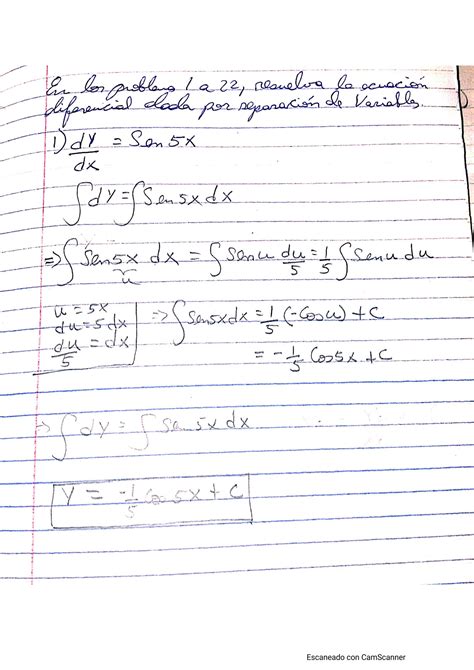 En los problema 1 a 22, resuelva la ecuación
diferencial dada por separación de Variables.
1) dy/dx = Sen 5x
∫dy = ∫Sen 5x dx
⇒ ∫ Sen 5x dx = ∫ Sen u du/5 = 1/5 ∫ Sen u du
u
u = 5x
du = 5 dx
du/5 = dx
⇒ ∫ Sen 5x dx = 1/5 (-Cos u) + C
= -1/5 Cos 5x + C
⇒ ∫ dy = ∫ Sen 5x dx
Y = -1/5 Cos 5x + C
Escaneado con CamScanner